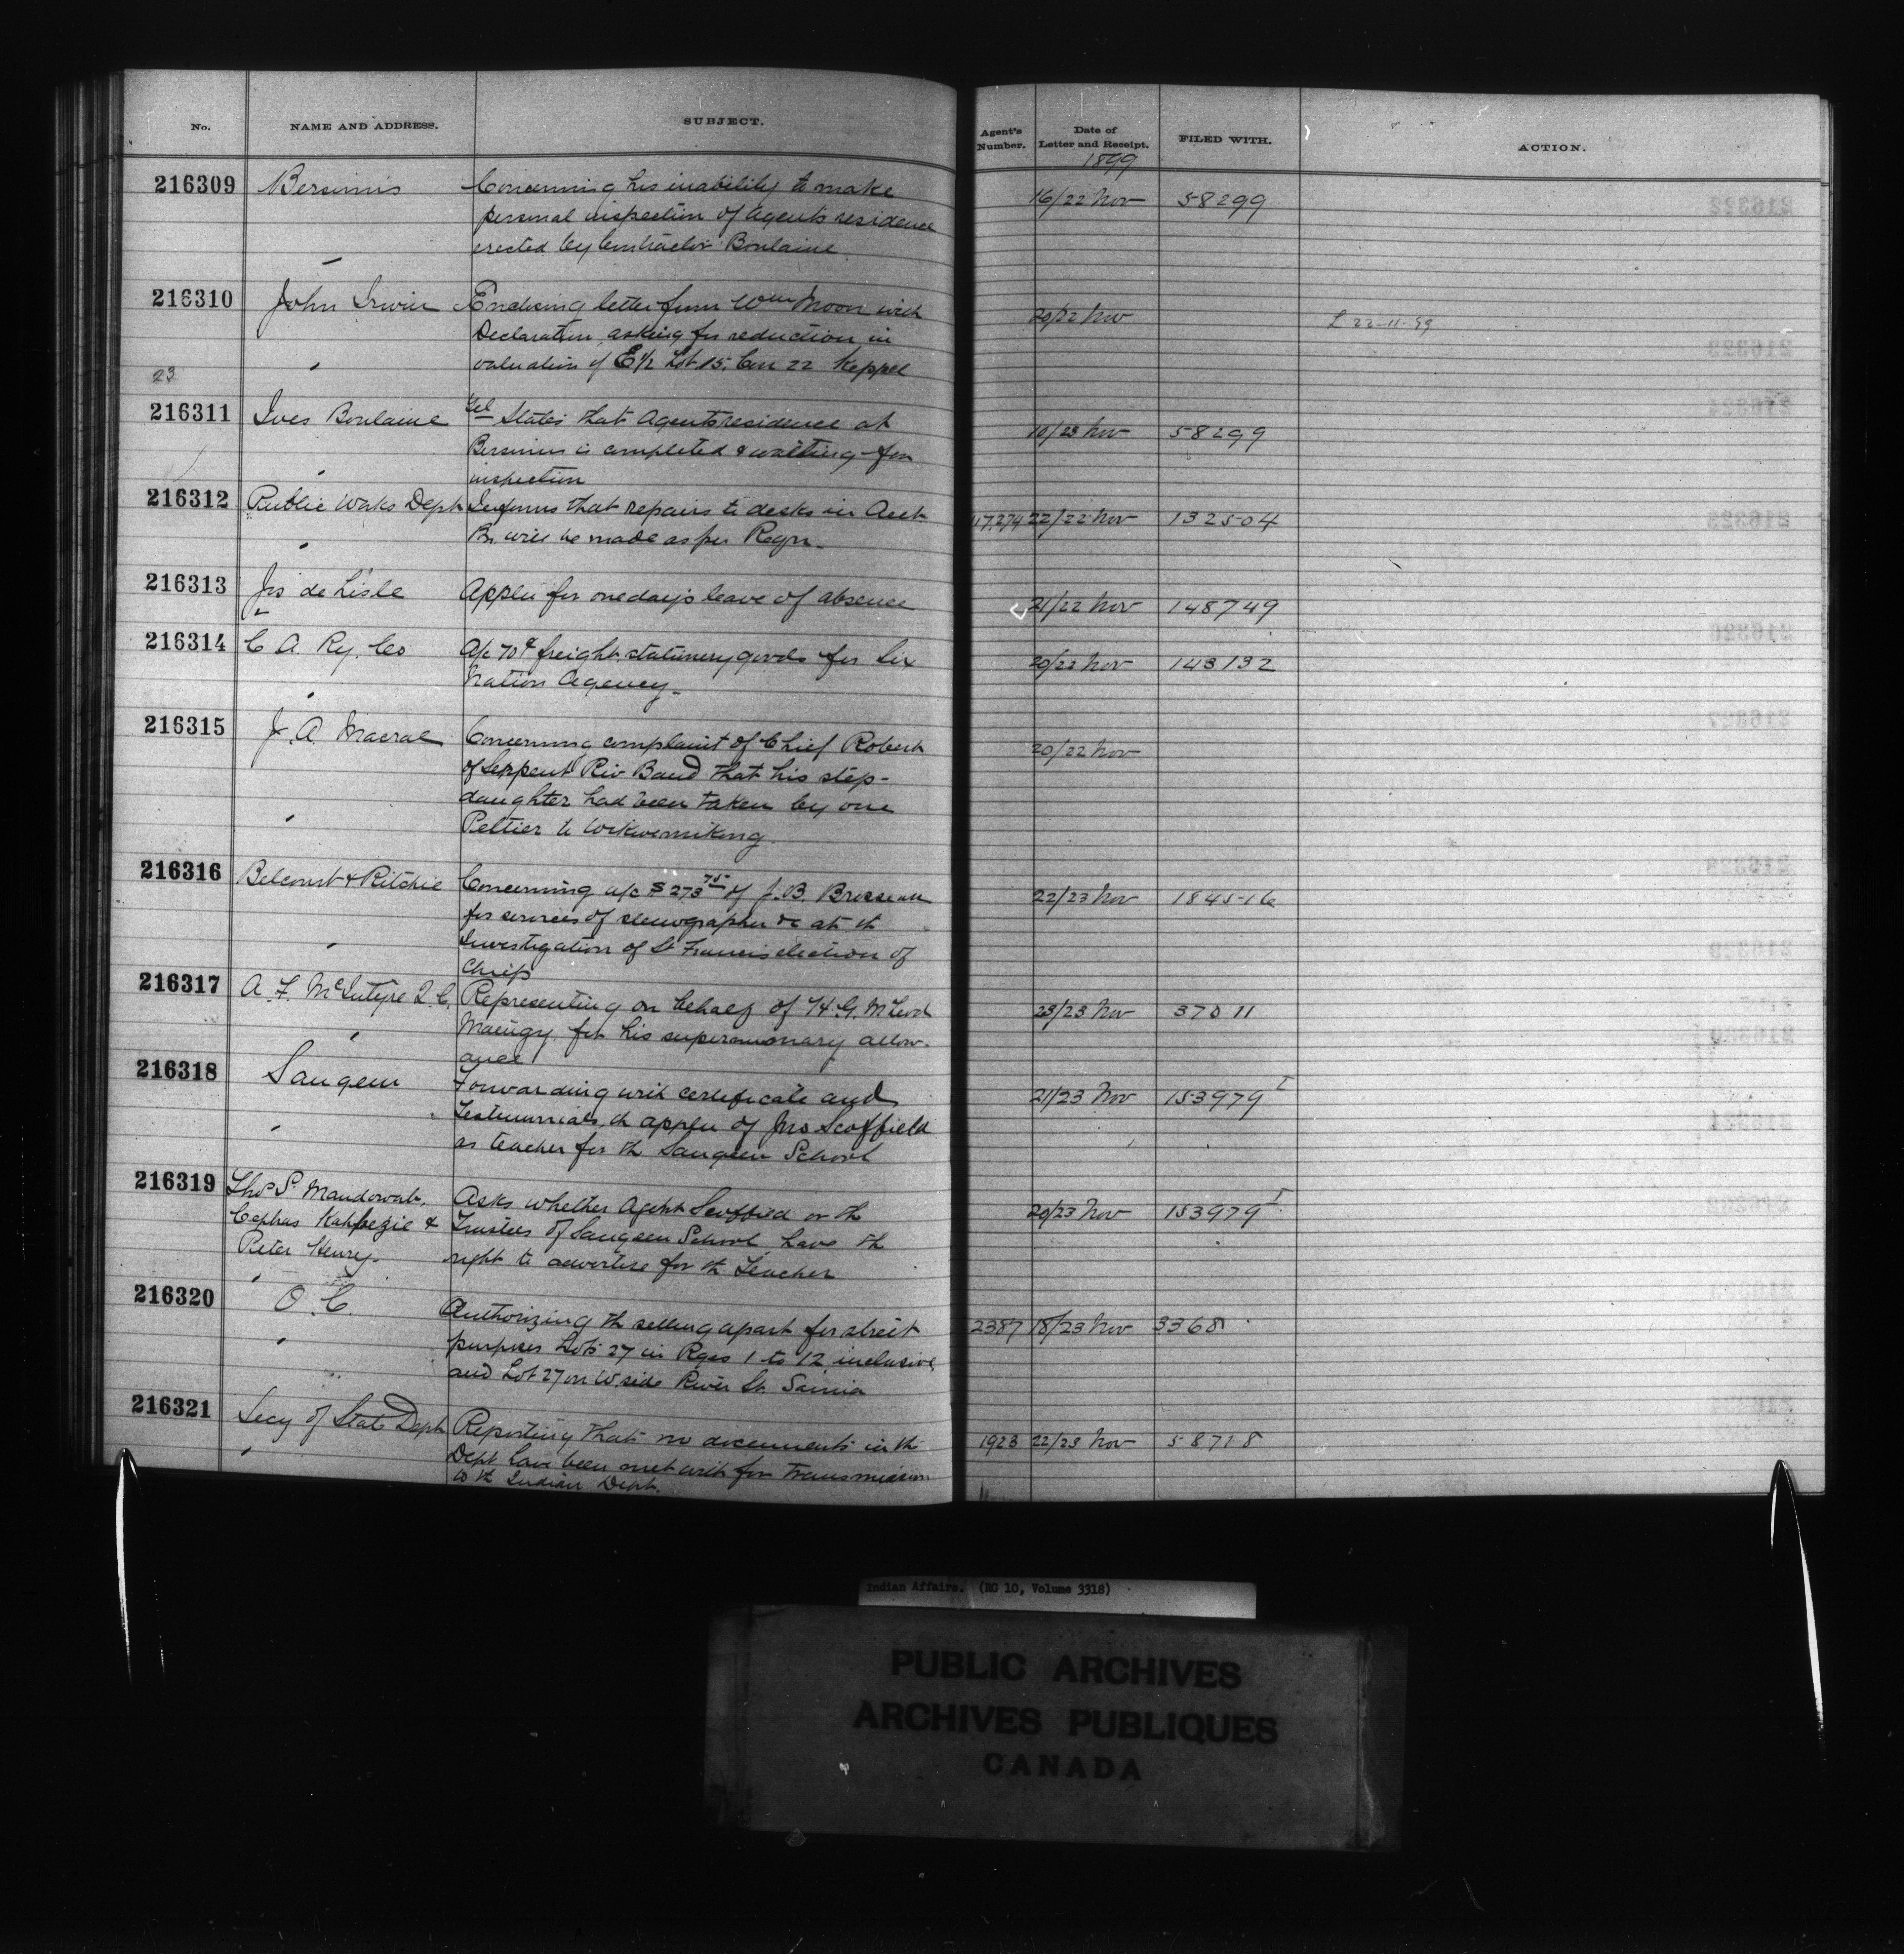 No.
NAME AND ADDRESS.
SUBJECT.
Agent's Number.
Date of Letter and Receipt.
FILED WITH.
ACTION.
1899
216309 Bersimis Concerning his inability to make 16/22 Nov 58299
personal inspection of Agents residence
erected by Contractor Boulaine
216310 John Irwin Enclosing letter from Wm Moon with 20/22 Nov L 22-11-99
Declaration, asking for reduction in
valuation of E 1/2 Lot 15. Con 22 Keppel
23
216311 Ives Boulaine Tel States that Agents residence at 10/23 Nov 58299
Bersimis is completed & waiting for
inspection
216312 Public Works Dept Informs that repairs to desks in Acct 117,274 22/22 Nov 132504
Br. will be made as per Reqn.
216313 Jos de Lisle Applies for one day's leave of absence 21/22 Nov 148749
216314 C. A. Ry. Co A/c 70¢ freight stationery goods for Six 20/22 Nov 143132
Nation Agency.
216315 J. A. Macrae Concerning complaint of Chief Robert 20/22 Nov
of Serpent Riv Band that his step-
daughter had been taken by one
Peltier to Wikwemikong
216316 Belcourt & Ritchie Concerning a/c $273 75 of J. B. Brosseau 22/23 Nov 184516
for services of stenographer &c at th
Investigation of St Francis election of
Chiefs
216317 A. F. McIntyre Q. C. Representing on behalf of H. G. McLeod 23/23 Nov 37011
for his superannuary allow-
ance
216318 Saugeen Forwarding with certificate and 21/23 Nov 153979 I
Testimonials, th appln of Jno Scoffield
as teacher for th Saugeen School
216319 Thos S. Mandowab, Asks whether Agent Scoffield or th 20/23 Nov 153979 I
Cephas Kahbegie & Trustees of Saugeen School have th
Peter Henry. right to advertise for th Teacher
216320 O. C. Authorizing th setting apart for street 2387 18/23 Nov 33681
purposes Lots 27 in Rges 1 to 12 inclusive
and Lot 27 on W side River St. Sarnia
216321 Secy of State Dept Reporting that no documents in th 1923 22/23 Nov 58718
Dept have been met with for transmission
to th Indian Dept.
Indian Affairs. (RG 10, Volume 3318)
PUBLIC ARCHIVES
ARCHIVES PUBLIQUES
CANADA